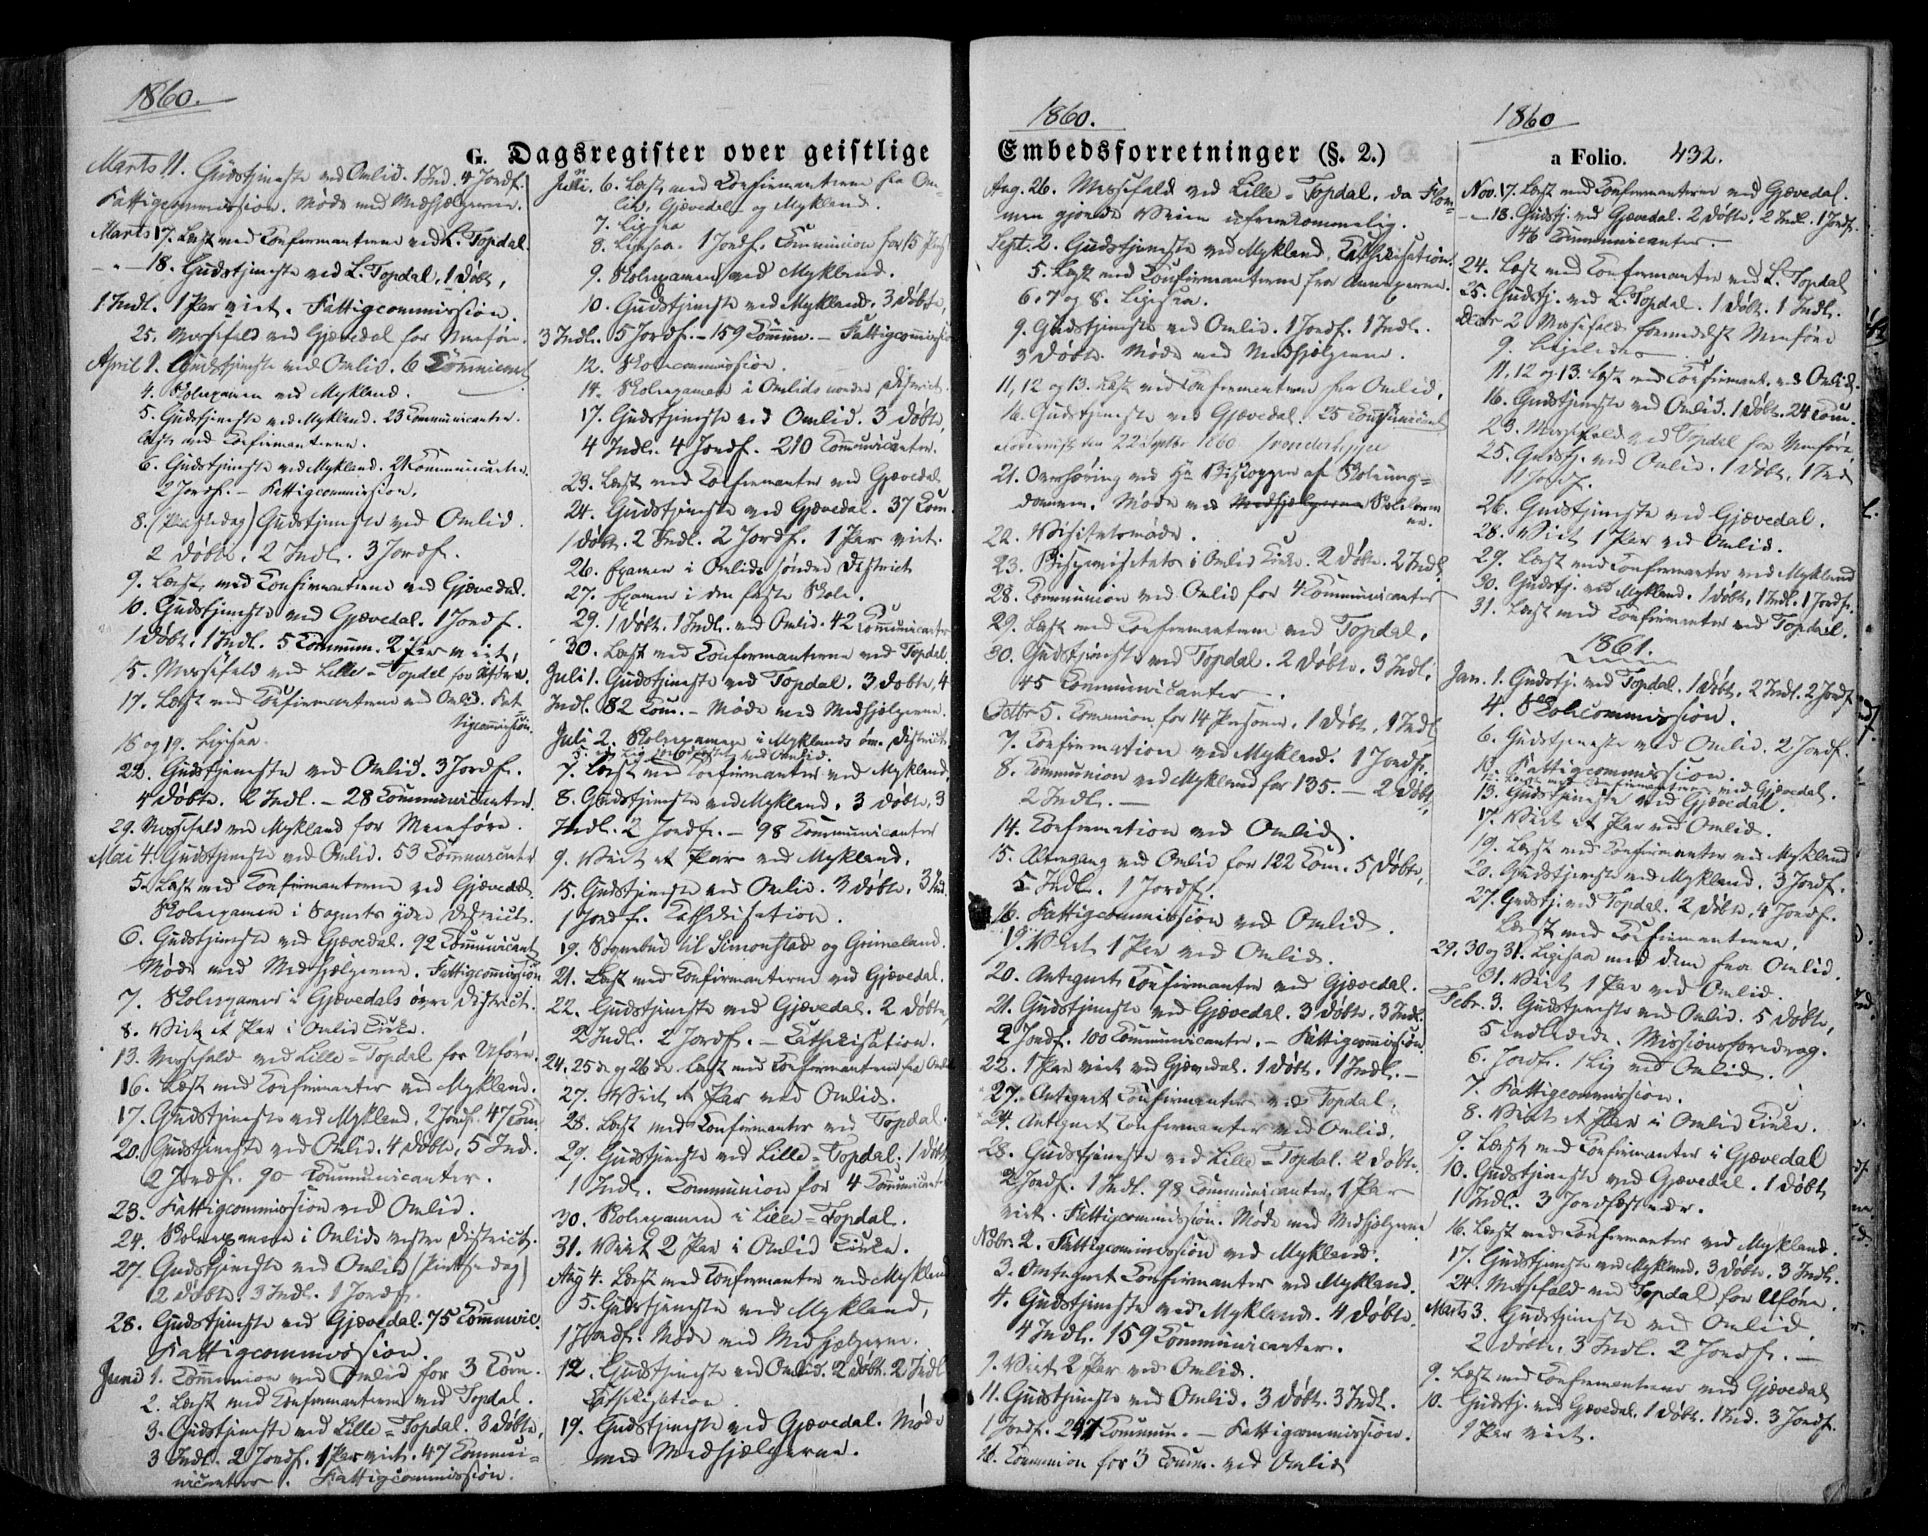 1860.
G. Dagsregister over geistlige
Marts 11. Gudstjeneste ved Omlid. 1 Ind. 4 Jordf.
Fattigcommission. Møde med Medhjælperne.
Marts 17. Læst med Confirmanterne ved L. Topdal.
-"- 18. Gudstjeneste ved L. Topdal, 1 Døbt,
1 Indl. 1 Par viet. Fattigcommission.
25. Messefald ved Gjævedal for Menføre.
April 1. Gudstjeneste ved Omlid. 6 Communicant.
4. Skoleexamen ved Mykland.
5. Gudstjeneste ved Mykland. 23 Communicanter.
Læst med Confirmanterne.
6. Gudstjeneste ved Mykland. 21 Communicanter.
2 Jordf. - Fattigcommission.
8. (Paaskedag) Gudstjeneste ved Omlid.
2 Døbte. 2 Indl. 3 Jordf.
9. Læst med Confirmanterne ved Gjævedal.
10. Gudstjeneste ved Gjævedal. 1 Jordf.
1 Døbt. 1 Indl. 5 Commun. 2 Par viet.
15. Messefald ved Lille-Topdal for
17. Læst med Confirmanterne ved Omlid. Fat-
tigcommission.
18 og 19. Ligesaa.
22. Gudstjeneste ved Omlid. 3 Jordf.
4 Døbte. 2 Indl. - 28 Communicanter.
29. Messefald ved Mykland for Menføre.
Mai 4. Gudstjeneste ved Omlid. 53 Communicanter
5. Læst med Confirmanterne ved Gjævedal.
Skoleexamen i Sognets ydre District.
6. Gudstjeneste ved Gjævedal. 92 Communicant
Møde med Medhjælperne. Fattigcommission
7. Skoleexamen i Gjævedals øvre District.
8. Viet et Par i Omlid Kirke.
13. Messefald ved Lille-Topdal for Uføre.
16. Læst med Confirmanter ved Mykland.
17. Gudstjeneste ved Mykland. 2 Jordf. 47 Com.
20. Gudstjeneste ved Omlid. 4 Døbte, 5 Ind.
2 Jordf. 90 Communicanter.
23. Fattigcommission ved Omlid.
24. Skoleexamen i Omlids vestre District.
27. Gudstjeneste ved Omlid (Pintsedag)
2 Døbte. 3 Indl. 1 Jordf.
28. Gudstjeneste ved Gjævedal. 75 Communic.
Fattigcommission.
Juni 1. Communion ved Omlid for 3 Com.
2. Læst med Confirmanterne ved Topdal.
3. Gudstjeneste ved Lille-Topdal. 3 Døbte,
3 Indl. 2 Jordf. 1 Par viet. 47 Commu-
nicanter. Fattigcommission.
Juni. 6. Læst med Confirmanterne fra Om-
lid, Gjævedal og Mykland.
7. Ligesaa
8. Ligesaa. 1 Jordf. Communion for 15
9. Skoleexamen ved Mykland.
10. Gudstjeneste ved Mykland. 3 Døbte,
3 Indl. 5 Jordf. - 159 Commun. - Fattigcommission
12. Skolecommission.
14. Skoleexamen i Omlids nordre District.
17. Gudstjeneste ved Omlid. 3 Døbte,
4 Indl. 4 Jordf. 210 Communicanter.
23. Læst med Confirmanter ved Gjævedal
24. Gudstjeneste ved Gjævedal. 37 Com.
1 Døbt. 2 Indl. 2 Jordf. 1 Par viet.
26. Examen i Omlids søndre District
27. Examen i den faste Skole.
29. 1 Døbt. 1 Indl. ved Omlid. 42 Communicanter
30. Læst med Confirmanterne ved Topdal.
Juli 1. Gudstjeneste ved Topdal. 3 Døbte, 4
Indl. 82 Com. - Møde med Medhjælperne.
Juli 2. Skoleexamen i Myklands øvre District.
5. ved Omlid.
7. Læst med Confirmanter ved Mykland.
8. Gudstjeneste ved Mykland. 3 Døbte, 3
Indl. 2 Jordf. - 98 Communicanter
9. Viet et Par ved Mykland.
15. Gudstjeneste ved Omlid. 3 Døbte, 3 Ind.
1 Jordf. Cathekisation.
19. Sognebud til Simonstad og Grimeland.
21. Læst med Confirmanterne ved Gjævedal.
22. Gudstjeneste ved Gjævedal. 2 Døbte,
2 Indl. 2 Jordf. - Cathekisation.
24, 25de og 26de Læst med Confirmanterne fra Omlid
27. Viet et Par ved Omlid.
28. Læst med Confirmanter ved Topdal.
29. Gudstjeneste ved Lille-Topdal. 1 Døbt
1 Indl. Communion for 4 Communicanter
30. Skoleexamen i Lille-Topdal.
31. Viet 2 Par i Omlid Kirke.
Aug 4. Læst med Confirmanter ved Mykland
5. Gudstjeneste ved Mykland,
1 Jordf. Møde med Medhjælperne.
12. Gudstjeneste ved Omlid. 2 Døbt. 2 Indl
Cathekisation.
19. Gudstjeneste ved Gjævedal. Møde
med Medhjælperne.
1860.
Embedsforretninger (§. 2.)
Aug. 26. Messefald ved Lille-Topdal, da Flom-
men gjorde Veien ufremkommelig.
Sept. 2. Gudstjeneste ved Mykland. Cathekisation.
5. Læst med Confirmanterne fra Annexerne.
6, 7 og 8. Ligesaa.
9. Gudstjeneste ved Omlid. 1 Jordf. 1 Indl.
3 Døbte. Møde med Medhjælperne.
11, 12 og 13. Læst med Confirmanterne fra Omlid.
16. Gudstjeneste ved Gjævedal. 25 Communicant
den 22 Septbr 1860
21. Overhøring ved Hr. Biskoppen af Skoleung-
dommen. Møde med Medhjælperne Skolelærer-
ne.
22. Visitatsmøde.
23. Bispevisitats i Omlid Kirke. 2 Døbte. 2 Indl.
28. Communion ved Omlid for 4 Communicanter
29. Læst med Confirmanterne ved Topdal.
30. Gudstjeneste ved Topdal. 2 Døbte. 3 Indl.
45 Communicanter.
Octbr 5. Comunion for 14 Personer. 1 Døbt, 1 Indl
7. Confirmation ved Mykland. 1 Jordf.
8. Communion ved Mykland for 135. - 2 Døbt,
2 Indl. -
14. Confirmation ved Omlid.
15. Altergang ved Omlid for 122 Com. 5 Døbte,
5 Indl. 1 Jordf.
16. Fattigcommission ved Omlid.
19. Viet 1 Par ved Omlid.
20. Antegnet Confirmanter ved Gjævedal.
21. Gudstjeneste ved Gjævedal. 3 Døbte, 3 Indl.
2 Jordf. 100 Communicanter. - Fattigcommission.
22. 1 Par viet ved Gjævedal. 1 Døbt. 1 Indl. -
27. Antegnet Confirmanter ved Topdal.
24. Antegnet Confirmanter ved Omlid.
28. Gudstjeneste ved Lille-Topdal. 2 Døbte.
2 Jordf. 1 Indl. 98 Communicanter, 1 Par
viet. Fattigcommission. Møde med Medhjælperne
Novbr. 2. Fattigcommission ved Mykland.
3. Antegnet Confirmanter ved Mykland.
4. Gudstjeneste ved Mykland. 4 Døbte.
4 Indl. 159 Communicanter.
9. Viet 2 Par ved Omlid.
11. Gudstjeneste ved Omlid. 3 Døbt. 3 Indl.
1 Jordf. 247 Commun. - Fattigcommission.
16. Communion for 3 Comm. ved Omlid
1860
a Folio. 432.
Nov. 17. Læst med Confirmanterne ved Gjævedal.
-"- 18. Gudstj. ved Gjævedal. 2 Døbte. 2 Indl. 1 Jordf.
46 Communicanter.
24. Læst med Confirmanter ved L. Topdal
25. Gudstj. ved L. Topdal. 1 Døbt. 1 Indl.
Decbr 2 Messefald formedelst Menføre
9. Ligeledes
11, 12 og 13. Læst med Confirmant. ved Omlid.
16. Gudstjeneste ved Omlid. 1 Døbt. 24 Com.
23. Messefald ved Topdal for Menføre.
25. Gudstj. ved Omlid. 1 Døbt, 1 Ind
1 Jordf.
26. Gudstjeneste ved Gjævedal.
28. Viet 1 Par ved Omlid.
29. Læst med Confirmanter ved Mykland
30. Gudstj. ved Mykland. 1 Døbt, 1 Indl. 1 Jordf.
31. Læst med Confirmanter ved Topdal.
1861.
Jan. 1. Gudstj. ved Topdal. 1 Døbt. 2 Indl. 2 Jordf
4. Skolecommission.
6. Gudstjeneste ved Omlid. 2 Jordf.
10. Fattigcommission.
12. Læst med Confirmanter ved Gjævedal.
13. Gudstjeneste ved Gjævedal.
17. Viet et Par ved Omlid.
19. Læst med Confirmanter ved Mykland
20. Gudstjeneste ved Mykland. 3 Jordf.
27. Gudstj. ved Topdal. 2 Døbte, 4 Jordf.
Læst med Confirmanterne.
29, 30 og 31. Ligesaa med dem fra Omlid.
31. Viet 1 Par ved Omlid.
Febr. 3. Gudstjeneste ved Omlid. 5 Døbte,
5 Indledede. Missionsforedrag.
6. Jordf. 1 Lig ved Omlid.
7. Fattigcommission.
8. Viet et Par i Omlid Kirke.
9. Læst med Confirmanter i Gjævedal
10. Gudstjeneste ved Gjævedal. 1 Døbt
1 Indl. 3 Jordfæstede.
16. Læst med Confirmanter ved Mykland.
17. Gudstjeneste ved Mykland. 3 Døbte. 3 Indl.
24. Messefald ved Topdal for Uføre.
Marts 3. Gudstjeneste ved Omlid.
2 Døbte. 3 Indl. 2 Jordf. -
9. Læst med Confirmanterne ved Gjævedal
10. Gudstj. ved Gjævedal. 1 Døbt. 1 Ind. 3 Jordf.
1 Par viet.